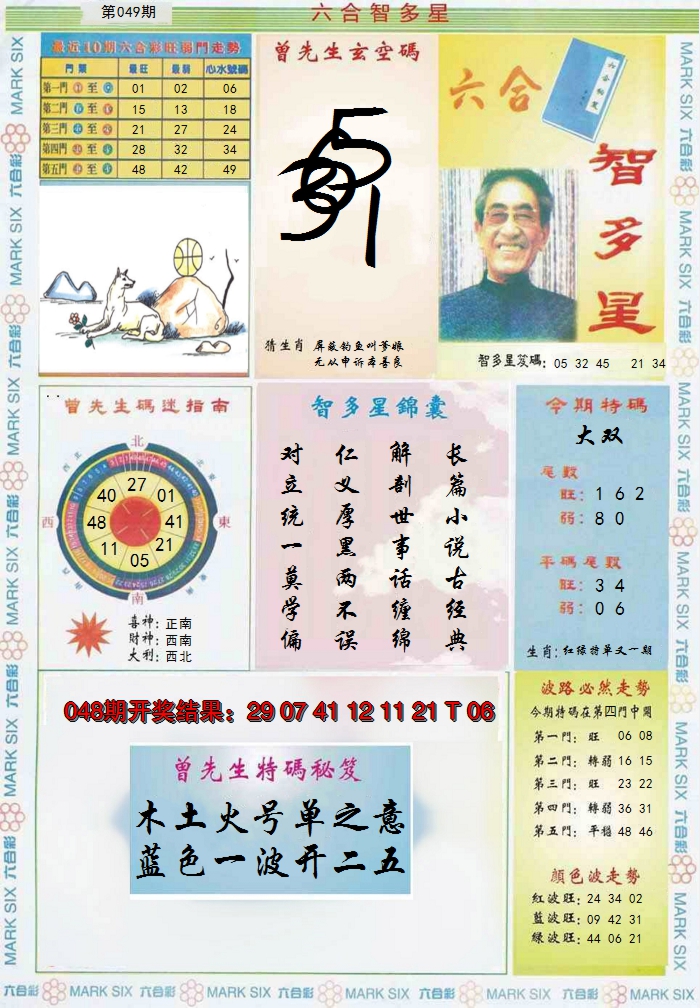 第049期
六合智多星
最近10期六合彩旺弱門走勢
門類 最旺 最弱 心水號碼
第一門 至 01 02 06
第二門 至 15 13 18
第三門 至 21 27 24
第四門 至 28 32 34
第五門 至 48 42 49
曾先生玄空碼
猜生肖 屏蔽钓鱼叫爹娘
无从申诉奔善良
六合
智多星
智多星笈碼: 05 32 45 21 34
曾先生碼迷指南
北
東
南
西
27
01
41
21
05
11
48
40
喜神: 正南
財神: 西南
大利: 西北
智多星錦囊
长篇小说古经典
解剖世事话缠绵
仁义厚黑两不误
对立统一莫学偏
今期特碼
大双
尾數
旺: 1 6 2
弱: 8 0
平碼尾數
旺: 3 4
弱: 0 6
生肖: 红绿特单又一期
048期开奖结果: 29 07 41 12 11 21 T 06
曾先生特碼秘笈
木土火号单之意
蓝色一波开二五
波路必然走勢
今期特碼在第四門中開
第一門: 旺 06 08
第二門: 轉弱 16 15
第三門: 旺 23 22
第四門: 轉弱 36 31
第五門: 平穩 48 46
顏色波走勢
紅波旺: 24 34 02
藍波旺: 09 42 31
綠波旺: 44 06 21
MARK SIX 六合彩 MARK SIX 六合彩 MARK SIX 六合彩 MARK SIX 六合彩